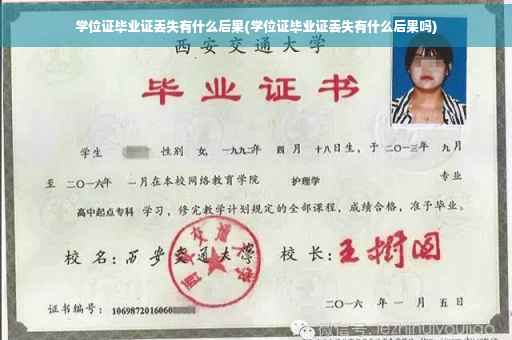 学位证毕业证丢失有什么后果(学位证毕业证丢失有什么后果吗)
西安交通大学
毕业证书
学生 性别 女, 一九九二年 四 月 十八日生, 于 二〇一三年 九月
至 二〇一六年 一月在本校网络教育学院 护理学 专业
高中起点专科 学习, 修完教学计划规定的全部课程, 成绩合格, 准予毕业。
校 名: 西安交通大学 校 长: 王树国
西安交通大学
证书编号: 1069872016060
二〇一六 年 一 月 五 日
微信号: jezhinuiyoujiao